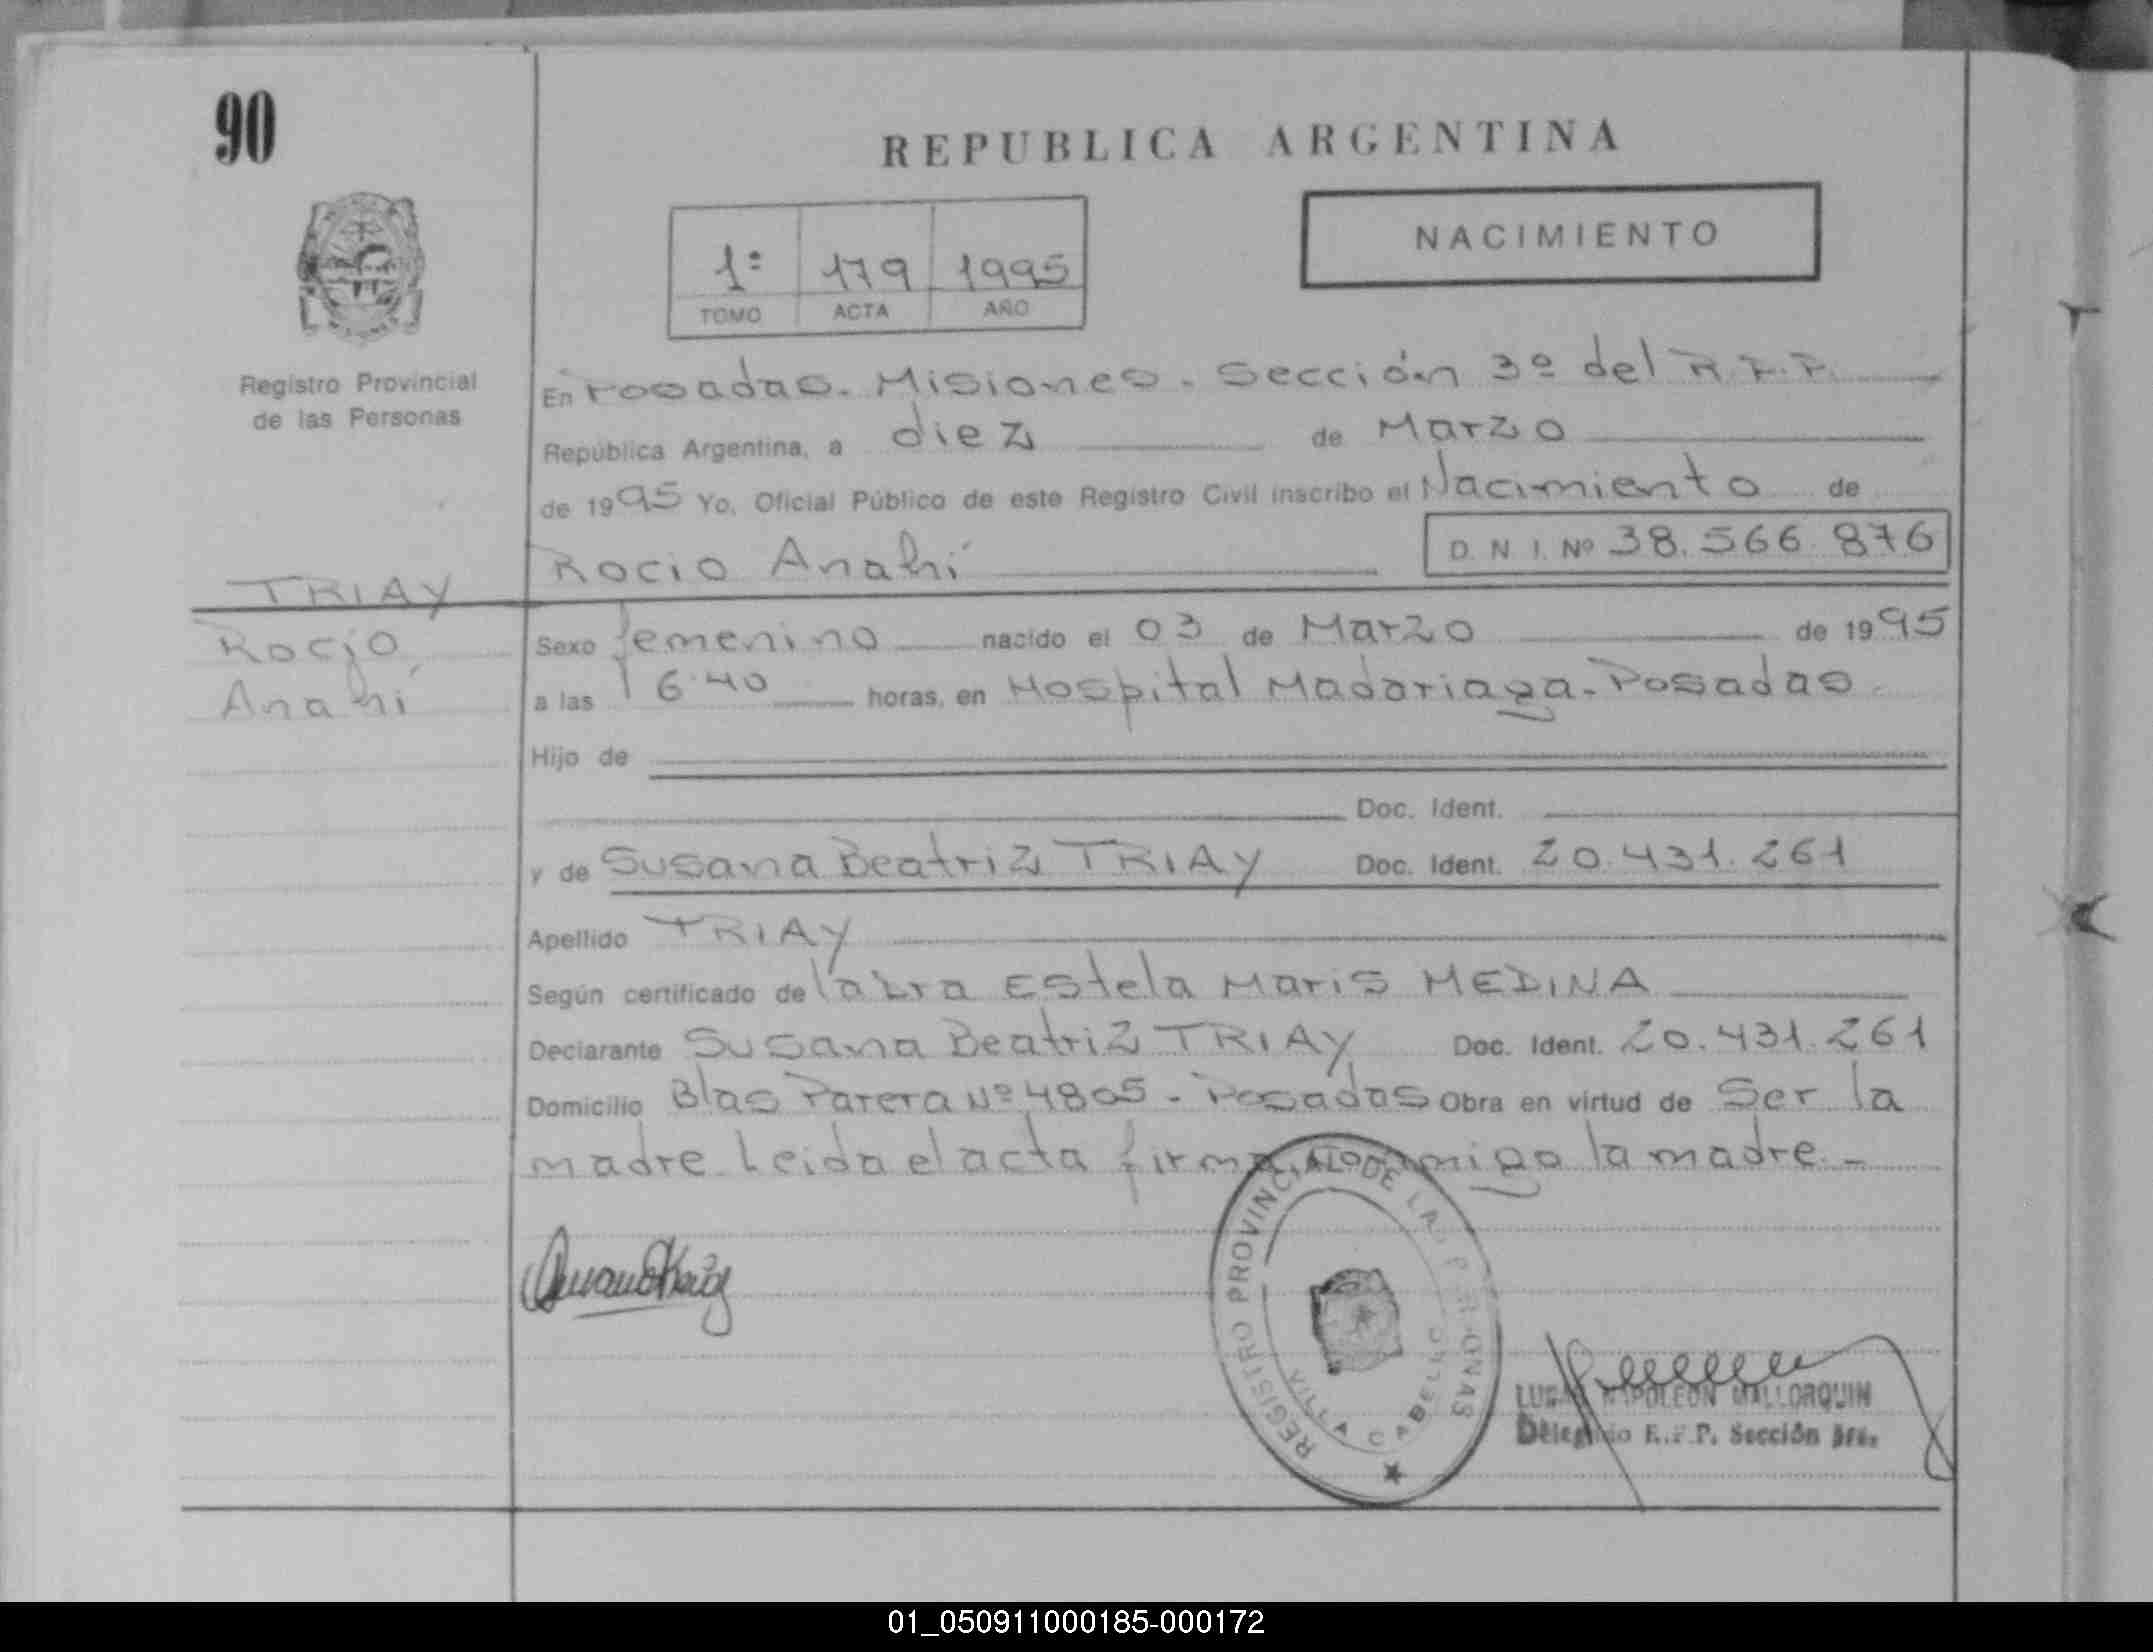 90
REPUBLICA ARGENTINA
NACIMIENTO
1º 179 1995
TOMO ACTA AÑO
Registro Provincial
de las Personas
En Posadas. Misiones. Sección 3º del R.P.P.
República Argentina, a diez de Marzo
de 1995 Yo, Oficial Público de este Registro Civil inscribo el Nacimiento de
Rocio Anahí D. N. I. Nº 38.566.876
TRIAY
Rocio
Anahí
Sexo femenino nacido el 03 de Marzo de 1995
a las 16.40 horas, en Hospital Madariaga. Posadas.
Hijo de
Doc. Ident.
y de Susana Beatriz TRIAY Doc. Ident. 20.431.261
Apellido TRIAY
Según certificado de la Dra Estela Maris MEDINA
Declarante Susana Beatriz TRIAY Doc. Ident. 20.431.261
Domicilio Blas Parera Nº 4805 - Posadas Obra en virtud de Ser la
madre. Leida el acta firma conmigo la madre. -
REGISTRO PROVINCIAL DE LAS PERSONAS
VILLA CABELLO
NAPOLEON MALLORQUIN
Delegado R.P.P. Sección 3ra.
01_050911000185-000172